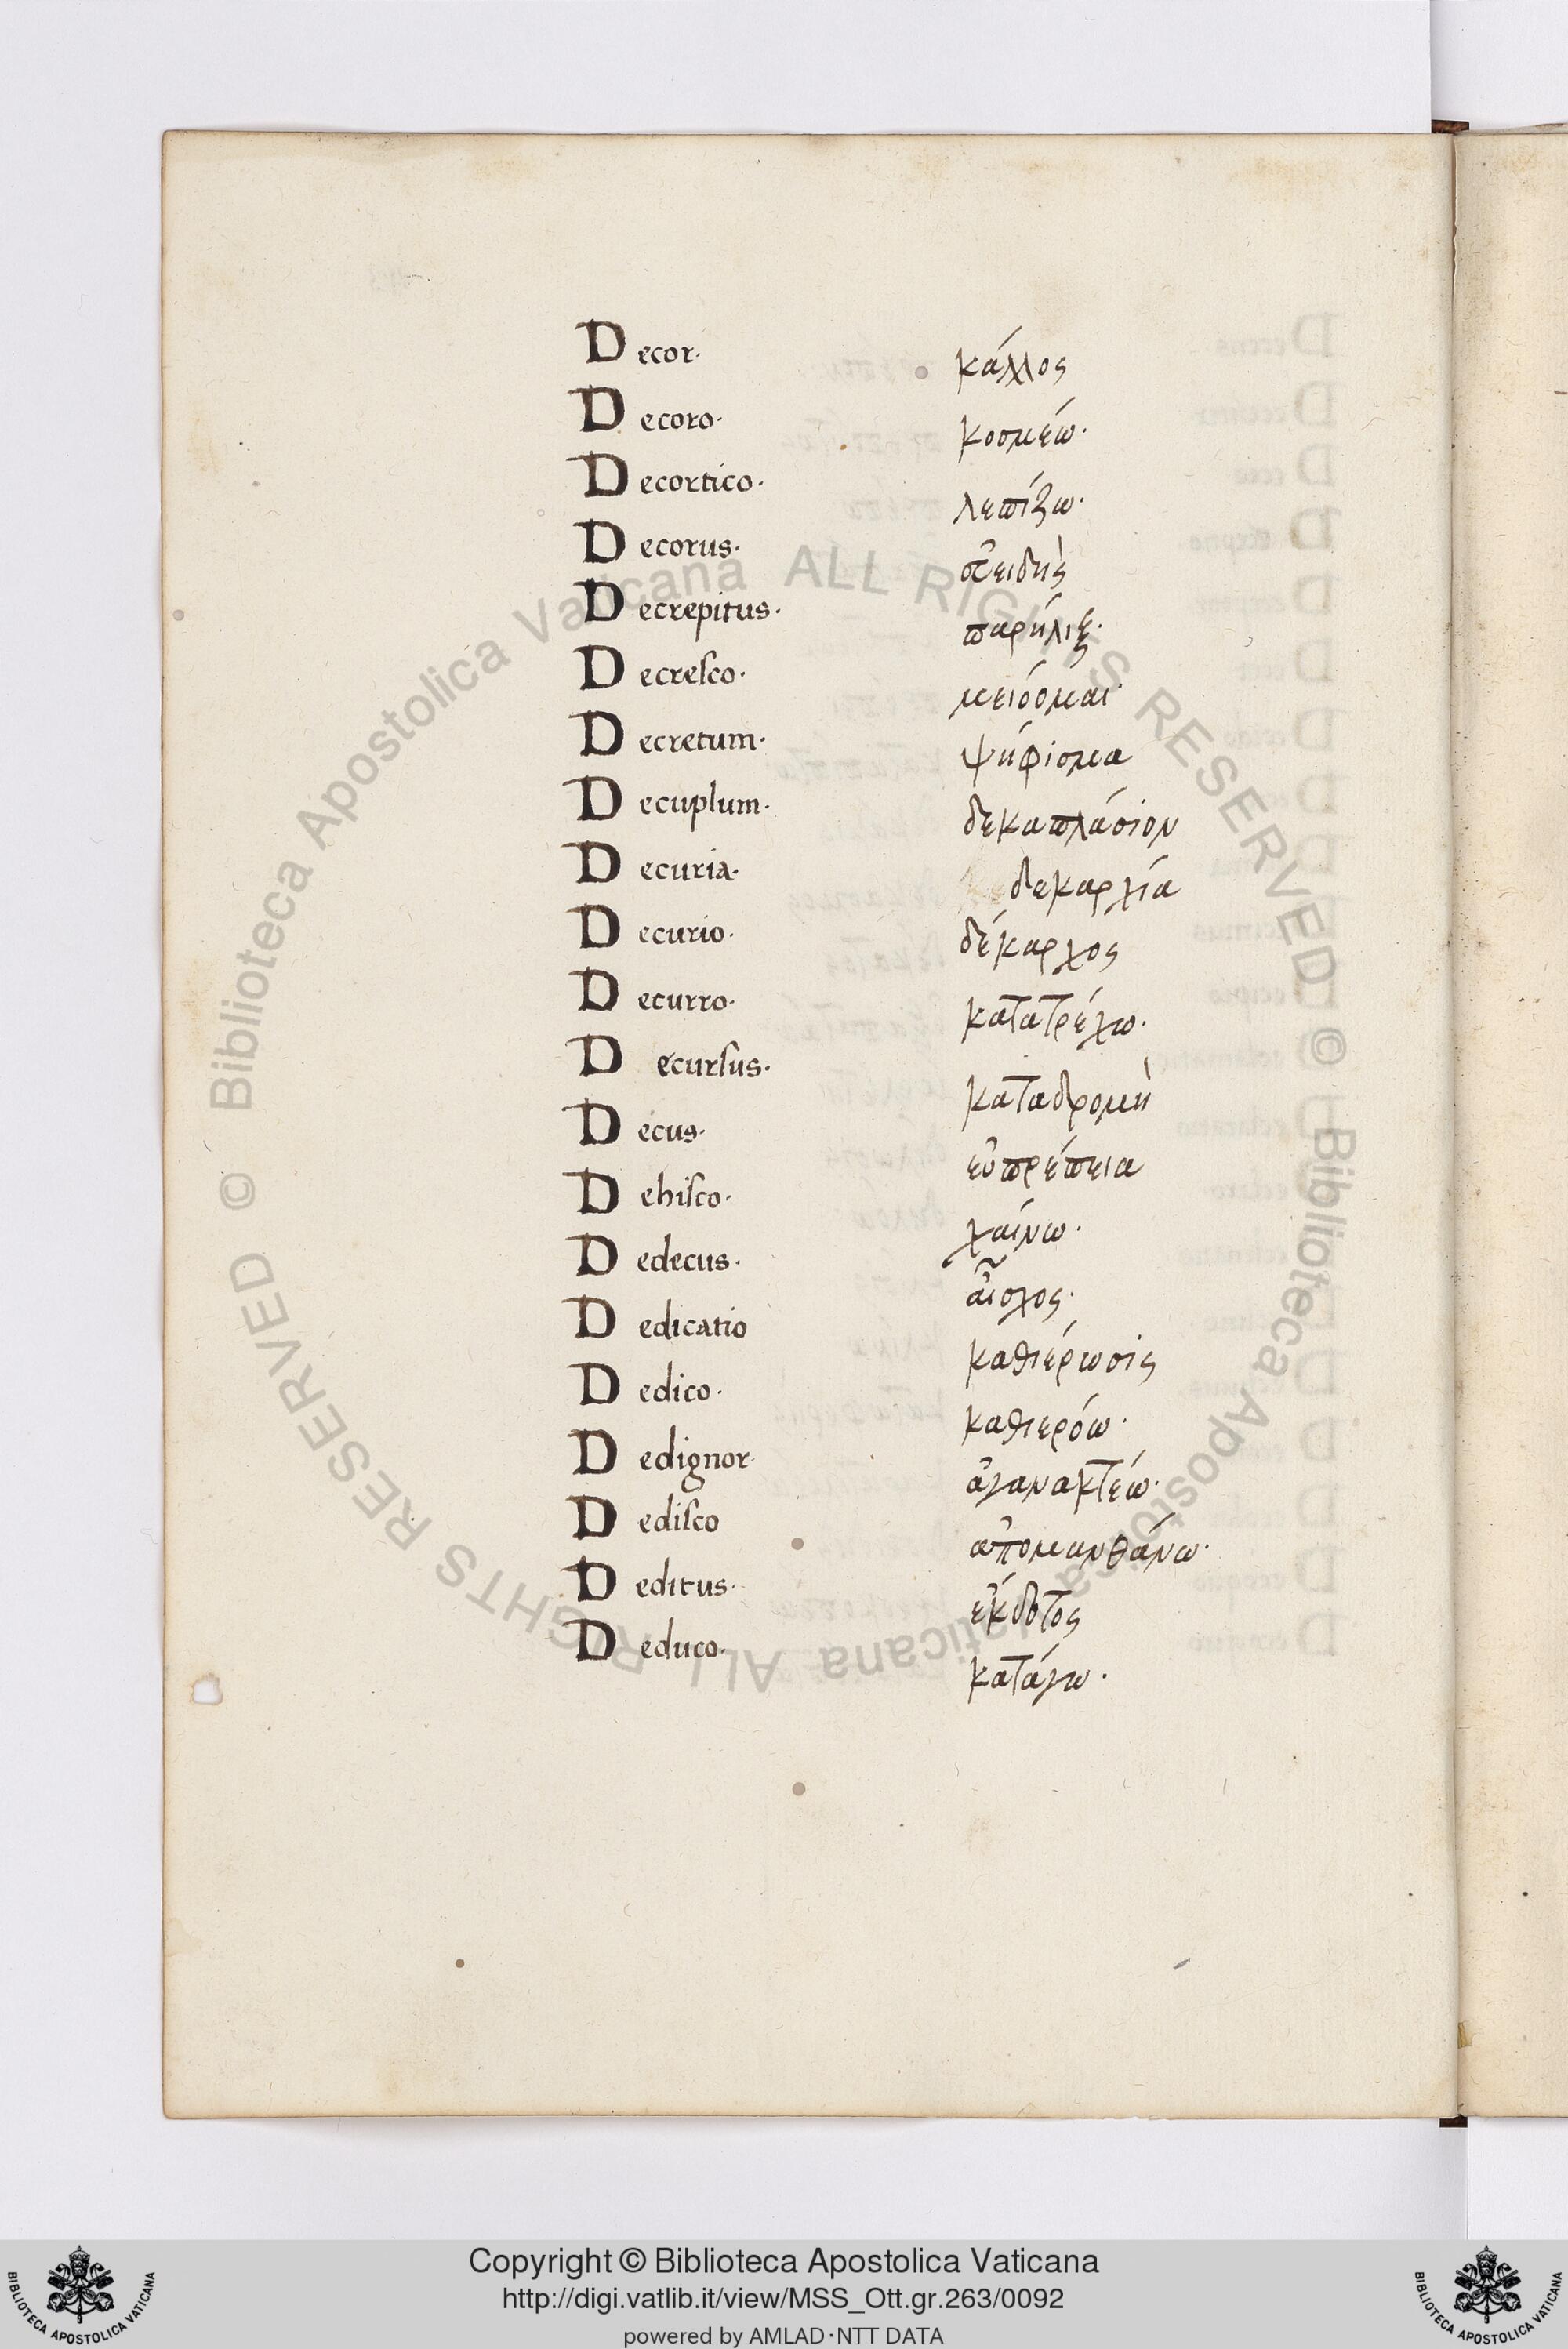 Decor· κάλλος
Decoro· κοσμέω·
Decortico· λεπίζω·
Decorus· εὐειδὴς
Decrepitus· παρήλιξ·
Decresco· μειόομαι·
Decretum· ψήφισμα
Decuplum· δεκαπλάσιον
Decuria· δεκαρχία
Decurio· δέκαρχος
Decurro· κατατρέχω·
Decursus· καταδρομὴ
Decus· εὐπρέπεια
Dehisco· χαίνω·
Dedecus· αἶσχος·
Dedicatio καθιέρωσις
Dedico· καθιερόω·
Dedignor· ἀγανακτέω·
Dedisco ἀπομανθάνω·
Deditus· ἔκδοτος
Deduco· κατάγω·
© Biblioteca Apostolica Vaticana ALL RIGHTS RESERVED © Biblioteca Apostolica Vaticana ALL RIGHTS RESERVED
Copyright © Biblioteca Apostolica Vaticana
http://digi.vatlib.it/view/MSS_Ott.gr.263/0092
powered by AMLAD·NTT DATA
BIBLIOTECA APOSTOLICA VATICANA
BIBLIOTECA APOSTOLICA VATICANA